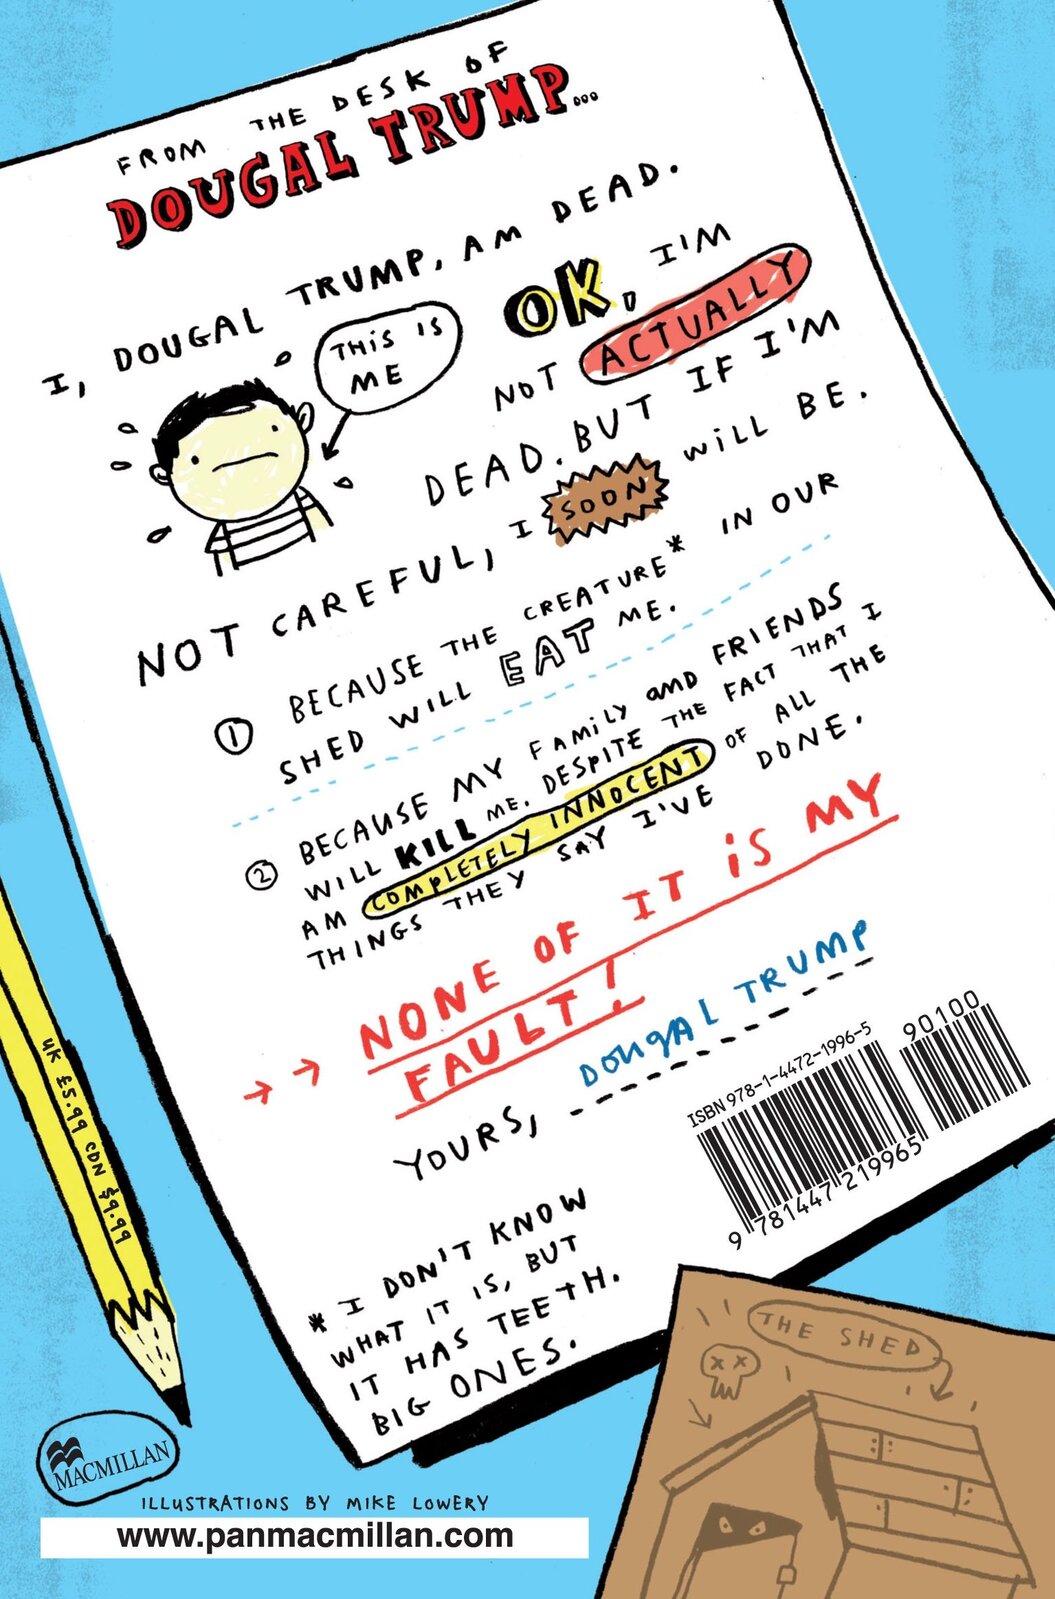 FROM THE DESK OF
DOUGAL TRUMP...
I, DOUGAL TRUMP, AM DEAD.
THIS IS
ME
OK, I'M
NOT ACTUALLY
DEAD. BUT IF I'M
NOT CAREFUL, I SOON WILL BE.
1 BECAUSE THE CREATURE* IN OUR
SHED WILL EAT ME.
2 BECAUSE MY FAMILY AND FRIENDS
WILL KILL ME. DESPITE THE FACT THAT I
AM COMPLETELY INNOCENT OF ALL THE
THINGS THEY SAY I'VE DONE.
NONE OF IT IS MY
FAULT!
YOURS, DOUGAL TRUMP
* I DON'T KNOW
WHAT IT IS, BUT
IT HAS TEETH.
BIG ONES.
ISBN 978-1-4472-1996-5
90100
9 781447 219965
UK £5.99 CDN $9.99
THE SHED
MACMILLAN
ILLUSTRATIONS BY MIKE LOWERY
www.panmacmillan.com